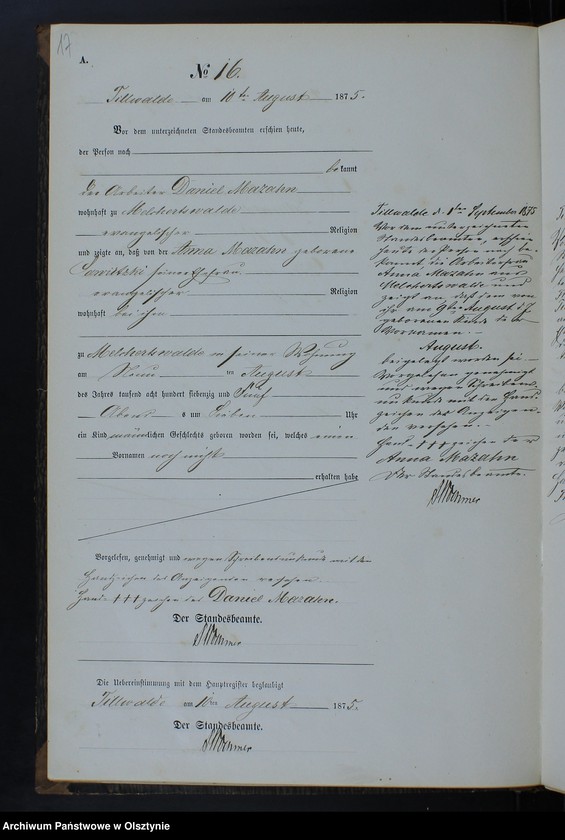 17
A.
No 16.
Tillwalde am 10ten August 1875.
Vor dem unterzeichneten Standesbeamten erschien heute,
der Person nach
bekannt
der Arbeiter Daniel Mazahn
wohnhaft zu Melchertswalde
evangelischer Religion
und zeigte an, daß von der Anna Mazahn geborene
Sawitzki seiner Ehefrau
evangelischer Religion
wohnhaft bei ihm
zu Melchertswalde in seiner Wohnung
am Neun ten August
des Jahres tausend acht hundert siebenzig und Fünf
Abends um Sieben Uhr
ein Kind männlichen Geschlechts geboren worden sei, welches einen
Vornamen noch nicht
erhalten habe
Vorgelesen, genehmigt und wegen Schreibensunkunde mit dem
Handzeichen des Anzeigenden versehen
Hand +++ zeichen des Daniel Mazahn.
Der Standesbeamte.
Die Uebereinstimmung mit dem Hauptregister beglaubigt
Tillwalde am 10ten August 1875.
Der Standesbeamte.
Tillwalde d. 1ten September 1875
Vor dem unterzeichneten
Standesbeamten, erschien
heute der Person nach be-
kannt die Arbeiterfrau
Anna Mazahn aus
Melchertswalde und
zeigte an, daß dem von
ihr am 9ten August d. J.
geborenen Kinde der
Vornamen -
August.
beigelegt worden sei -
Vorgelesen genehmigt
und wegen Schreibens-
unkunde mit dem Hand-
zeichen der Anzeigen-
den versehen.
Hand +++ zeichen der
Anna Mazahn
Der Standesbeamte.
Archiwum Państwowe w Olsztynie